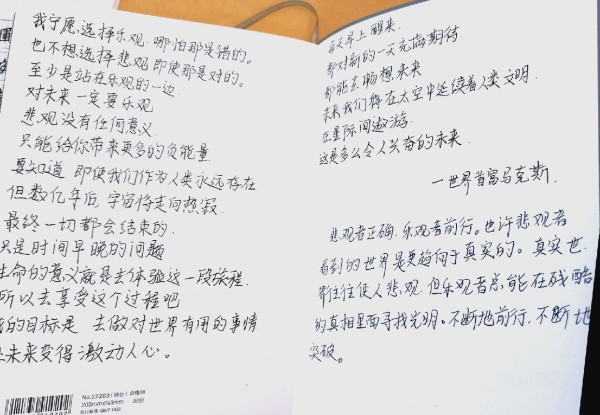 我宁愿选择乐观，哪怕那是错的。
也不想选择悲观 即使那是对的。
至少是站在乐观的一边.
对未来一定要乐观
悲观没有任何意义.
只能给你带来更多的负能量
要知道 即使我们作为人类永远存在
但数亿年后, 宇宙将走向热寂.
最终一切都会结束的.
只是时间早晚的问题
生命的意义就是去体验这一段旅程.
所以去享受这个过程吧
的目标是 去做对世界有用的事情
未来变得激动人心。
No.22203
早上醒来.
都对新的一天充满期待
都能去畅想未来
未来我们将在太空中延续着人类文明.
在星际间遨游.
这是多么令人兴奋的未来.
一世界首富马克斯.
悲观者正确, 乐观者前行。也许悲观者
看到的世界是更趋向于真实的。真实世
界往往使人悲观. 但乐观者总能在残酷
的真相里面寻找光明。不断地前行, 不断地
突破。